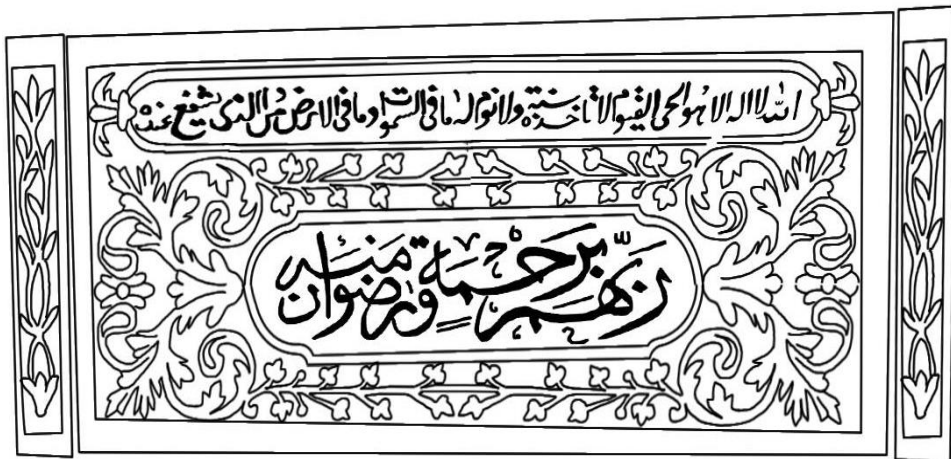 الله لا اله الا هو الحی القیوم لا تاخذه سنة ولا نوم له ما فی السموات وما فی الارض من الذی یشفع عنده
ربهم برحمة منه ورضوان